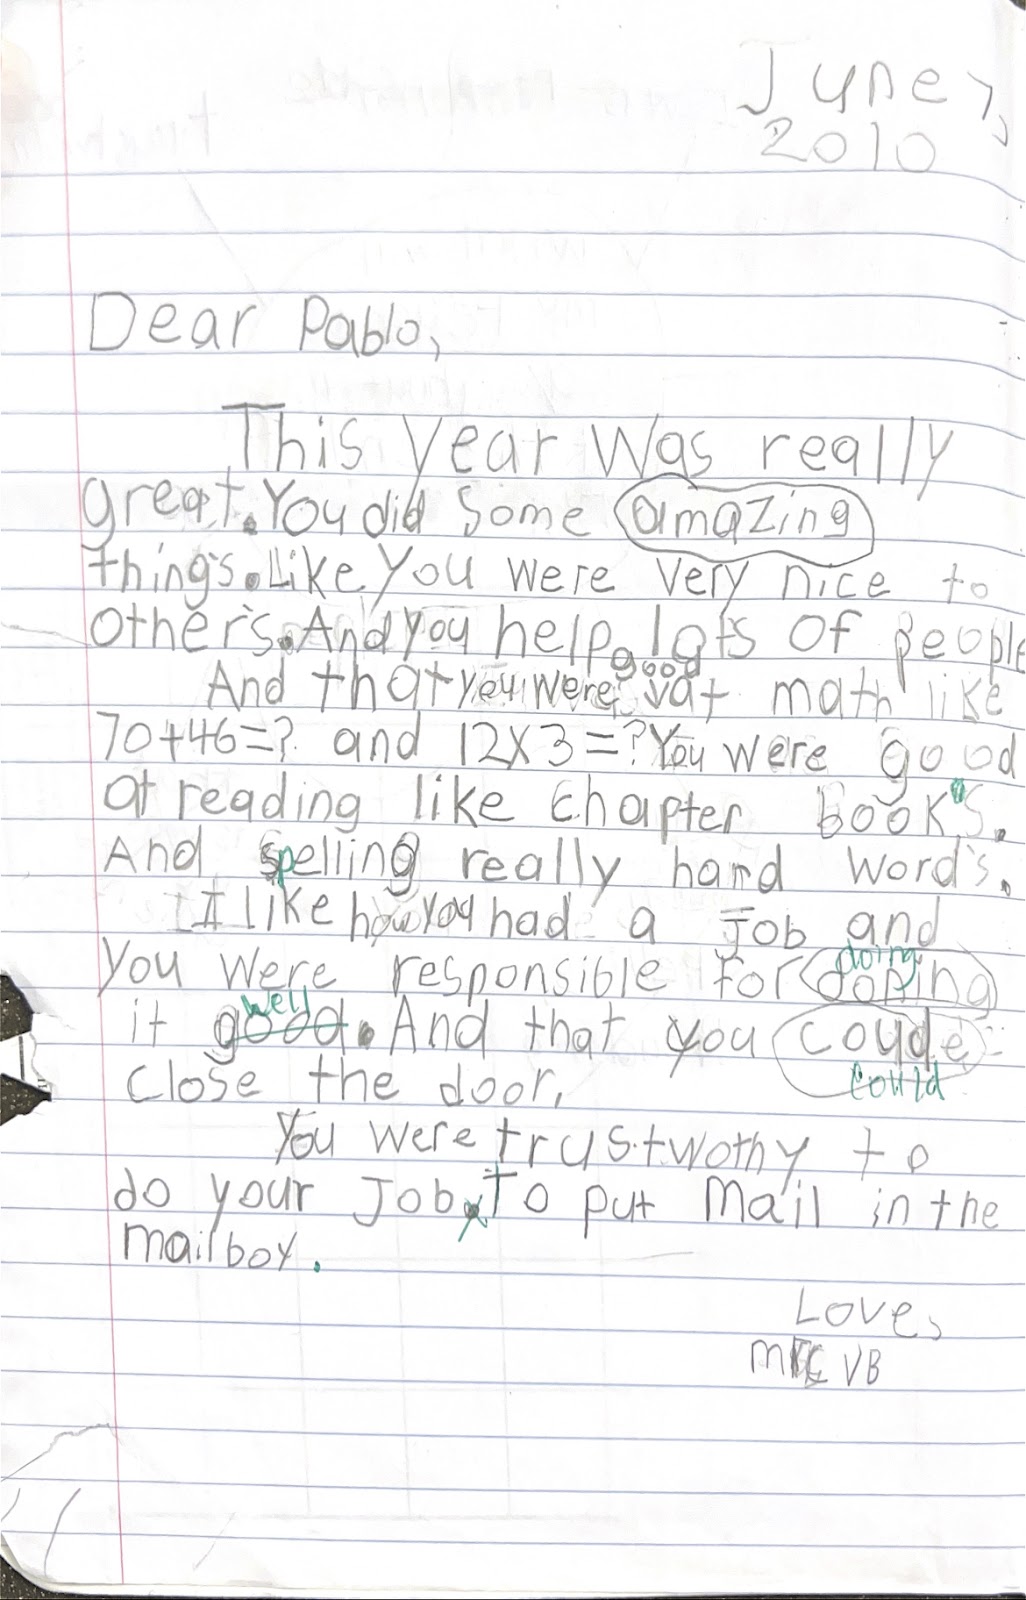 June 7,
2010
Dear Pablo,
This year was really
great. You did some amazing
thing's. Like you were very nice to
other's. And you help lots of people
good
And that you were at math like
70+46=? and 12x3=? You were good
at reading like chapter book's.
And spelling really hard word's.
I like how you had a job and
doing
you were responsible for doping
well
it good. And that you coude
could
close the door.
You were trustwothy to
do your job. To put mail in the
mailboy.
Love,
VB